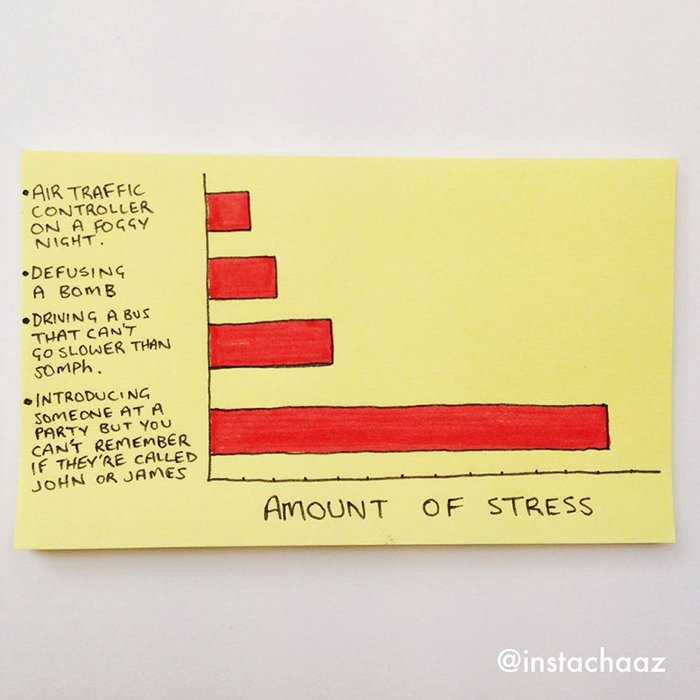 •AIR TRAFFIC
CONTROLLER
ON A FOGGY
NIGHT.
•DEFUSING
A BOMB
•DRIVING A BUS
THAT CAN'T
GO SLOWER THAN
50MPh.
•INTRODUCING
SOMEONE AT A
PARTY BUT YOU
CAN'T REMEMBER
IF THEY'RE CALLED
JOHN OR JAMES
AMOUNT OF STRESS
@instachaaz